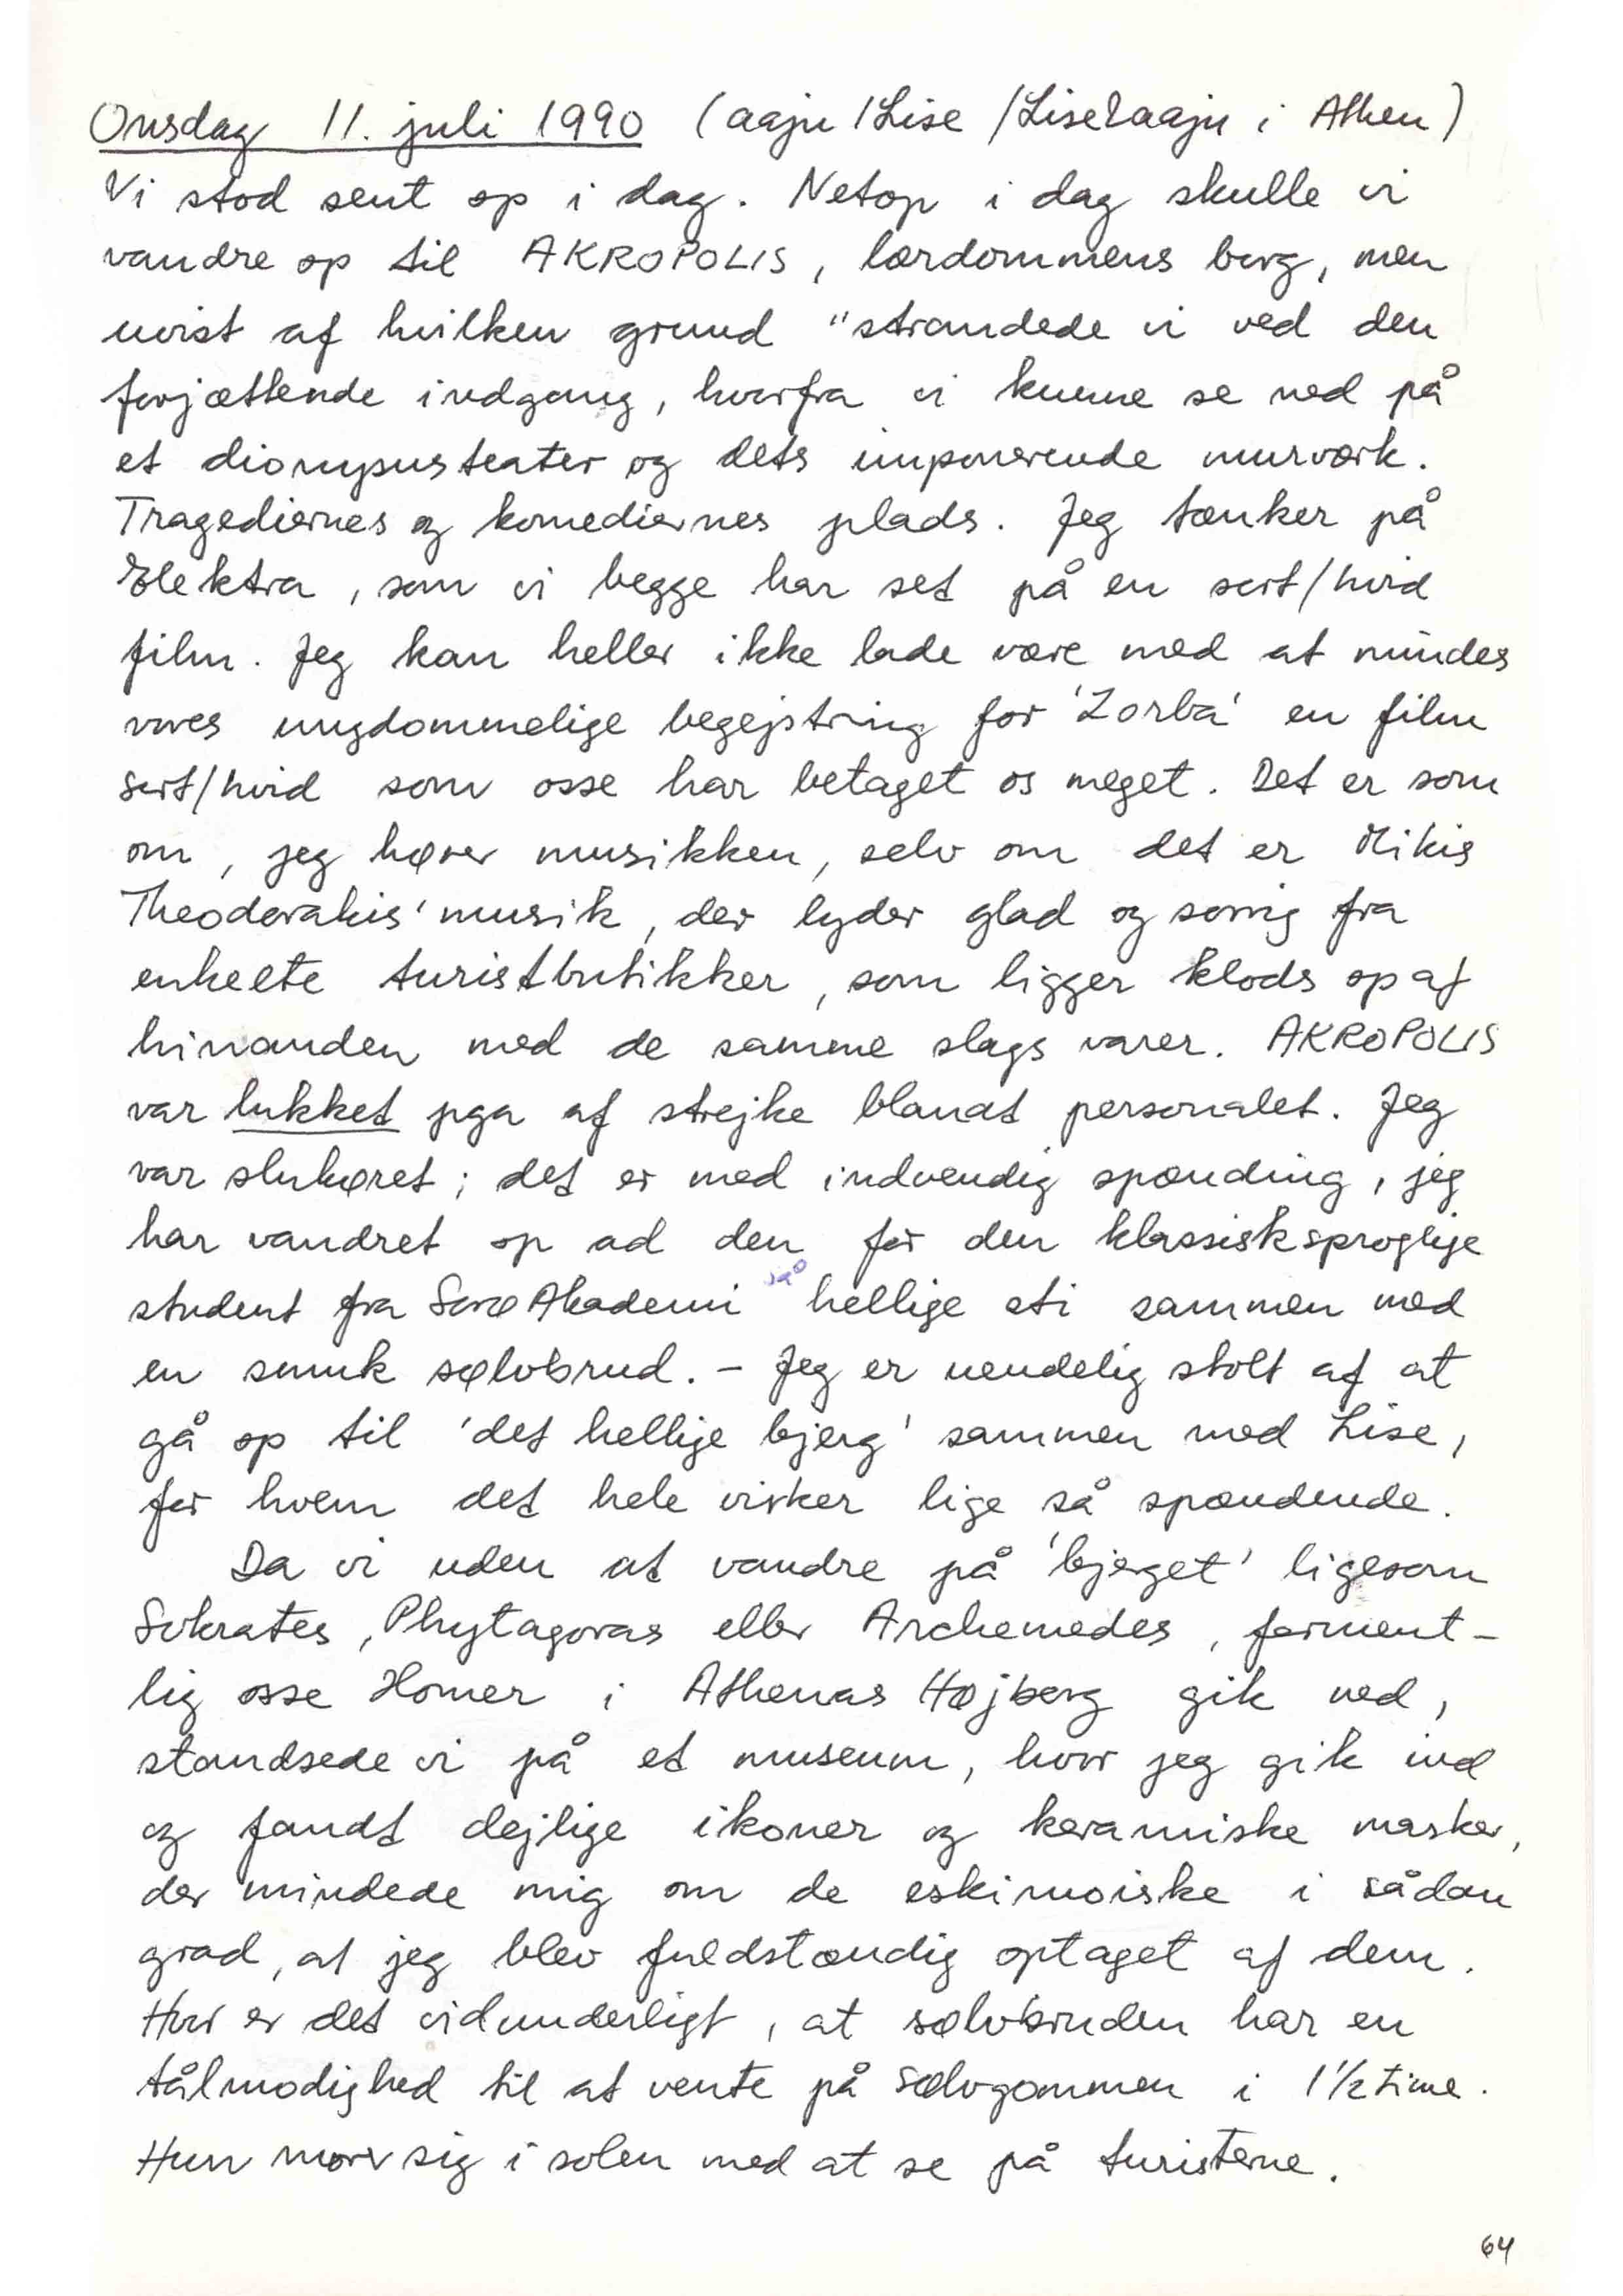 Onsdag 11. juli 1990 (aaju / Lise / Lise & aaju i Athen)
Vi stod sent op i dag. Netop i dag skulle vi
vandre op til AKROPOLIS, lærdommens borg, men
uvist af hvilken grund "strandede vi ved den
forjættende indgang, hvorfra vi kunne se ned på
et dionysusteater og dets imponerende murværk.
Tragediernes og komediernes plads. Jeg tænker på
Elektra, som vi begge har set på en sort/hvid
film. Jeg kan heller ikke lade være med at mindes
vores ungdommelige begejstring for 'Zorba' en film
sort/hvid som osse har betaget os meget. Det er som
om, jeg hører musikken, selv om det er Mikis
Theodorakis' musik, der lyder glad og sorrig fra
enkelte turistbutikker, som ligger klods op af
hinanden med de samme slags varer. AKROPOLIS
var lukket pga af strejke blandt personalet. Jeg
var slukøret; det er med indvendig spænding, jeg
har vandret op ad den for den klassisksproglige
student fra Sorø Akademi så hellige sti sammen med
en smuk sølvbrud. - Jeg er uendelig stolt af at
gå op til 'det hellige bjerg' sammen med Lise,
for hvem det hele virker lige så spændende.
Da vi uden at vandre på 'bjerget' ligesom
Sokrates, Phytagoras eller Archemedes, forment-
lig osse Homer i Athenas Højborg gik ned,
standsede vi på et museum, hvor jeg gik ind
og fandt dejlige ikoner og keramiske masker,
der mindede mig om de eskimoiske i sådan
grad, at jeg blev fuldstændig optaget af dem.
Hvor er det vidunderligt, at sølvbruden har en
tålmodighed til at vente på sølvgommen i 1½ time.
Hun morer sig i solen med at se på turisterne.
64